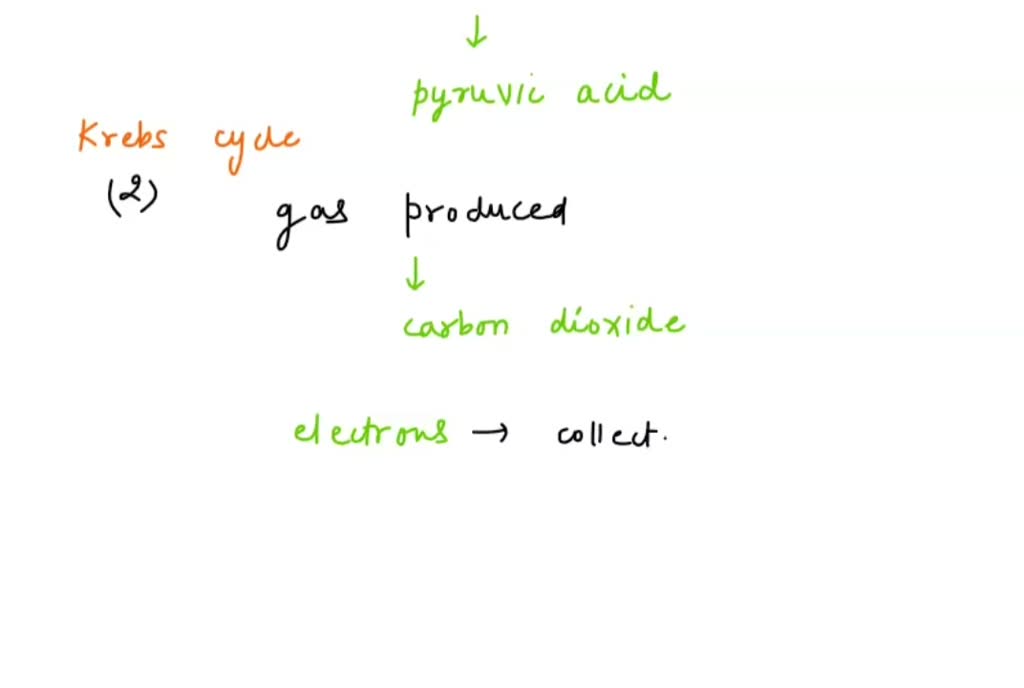 ↓
pyruvic acid
Krebs cycle
(2)
gas produced
↓
carbon dioxide
electrons → collect.